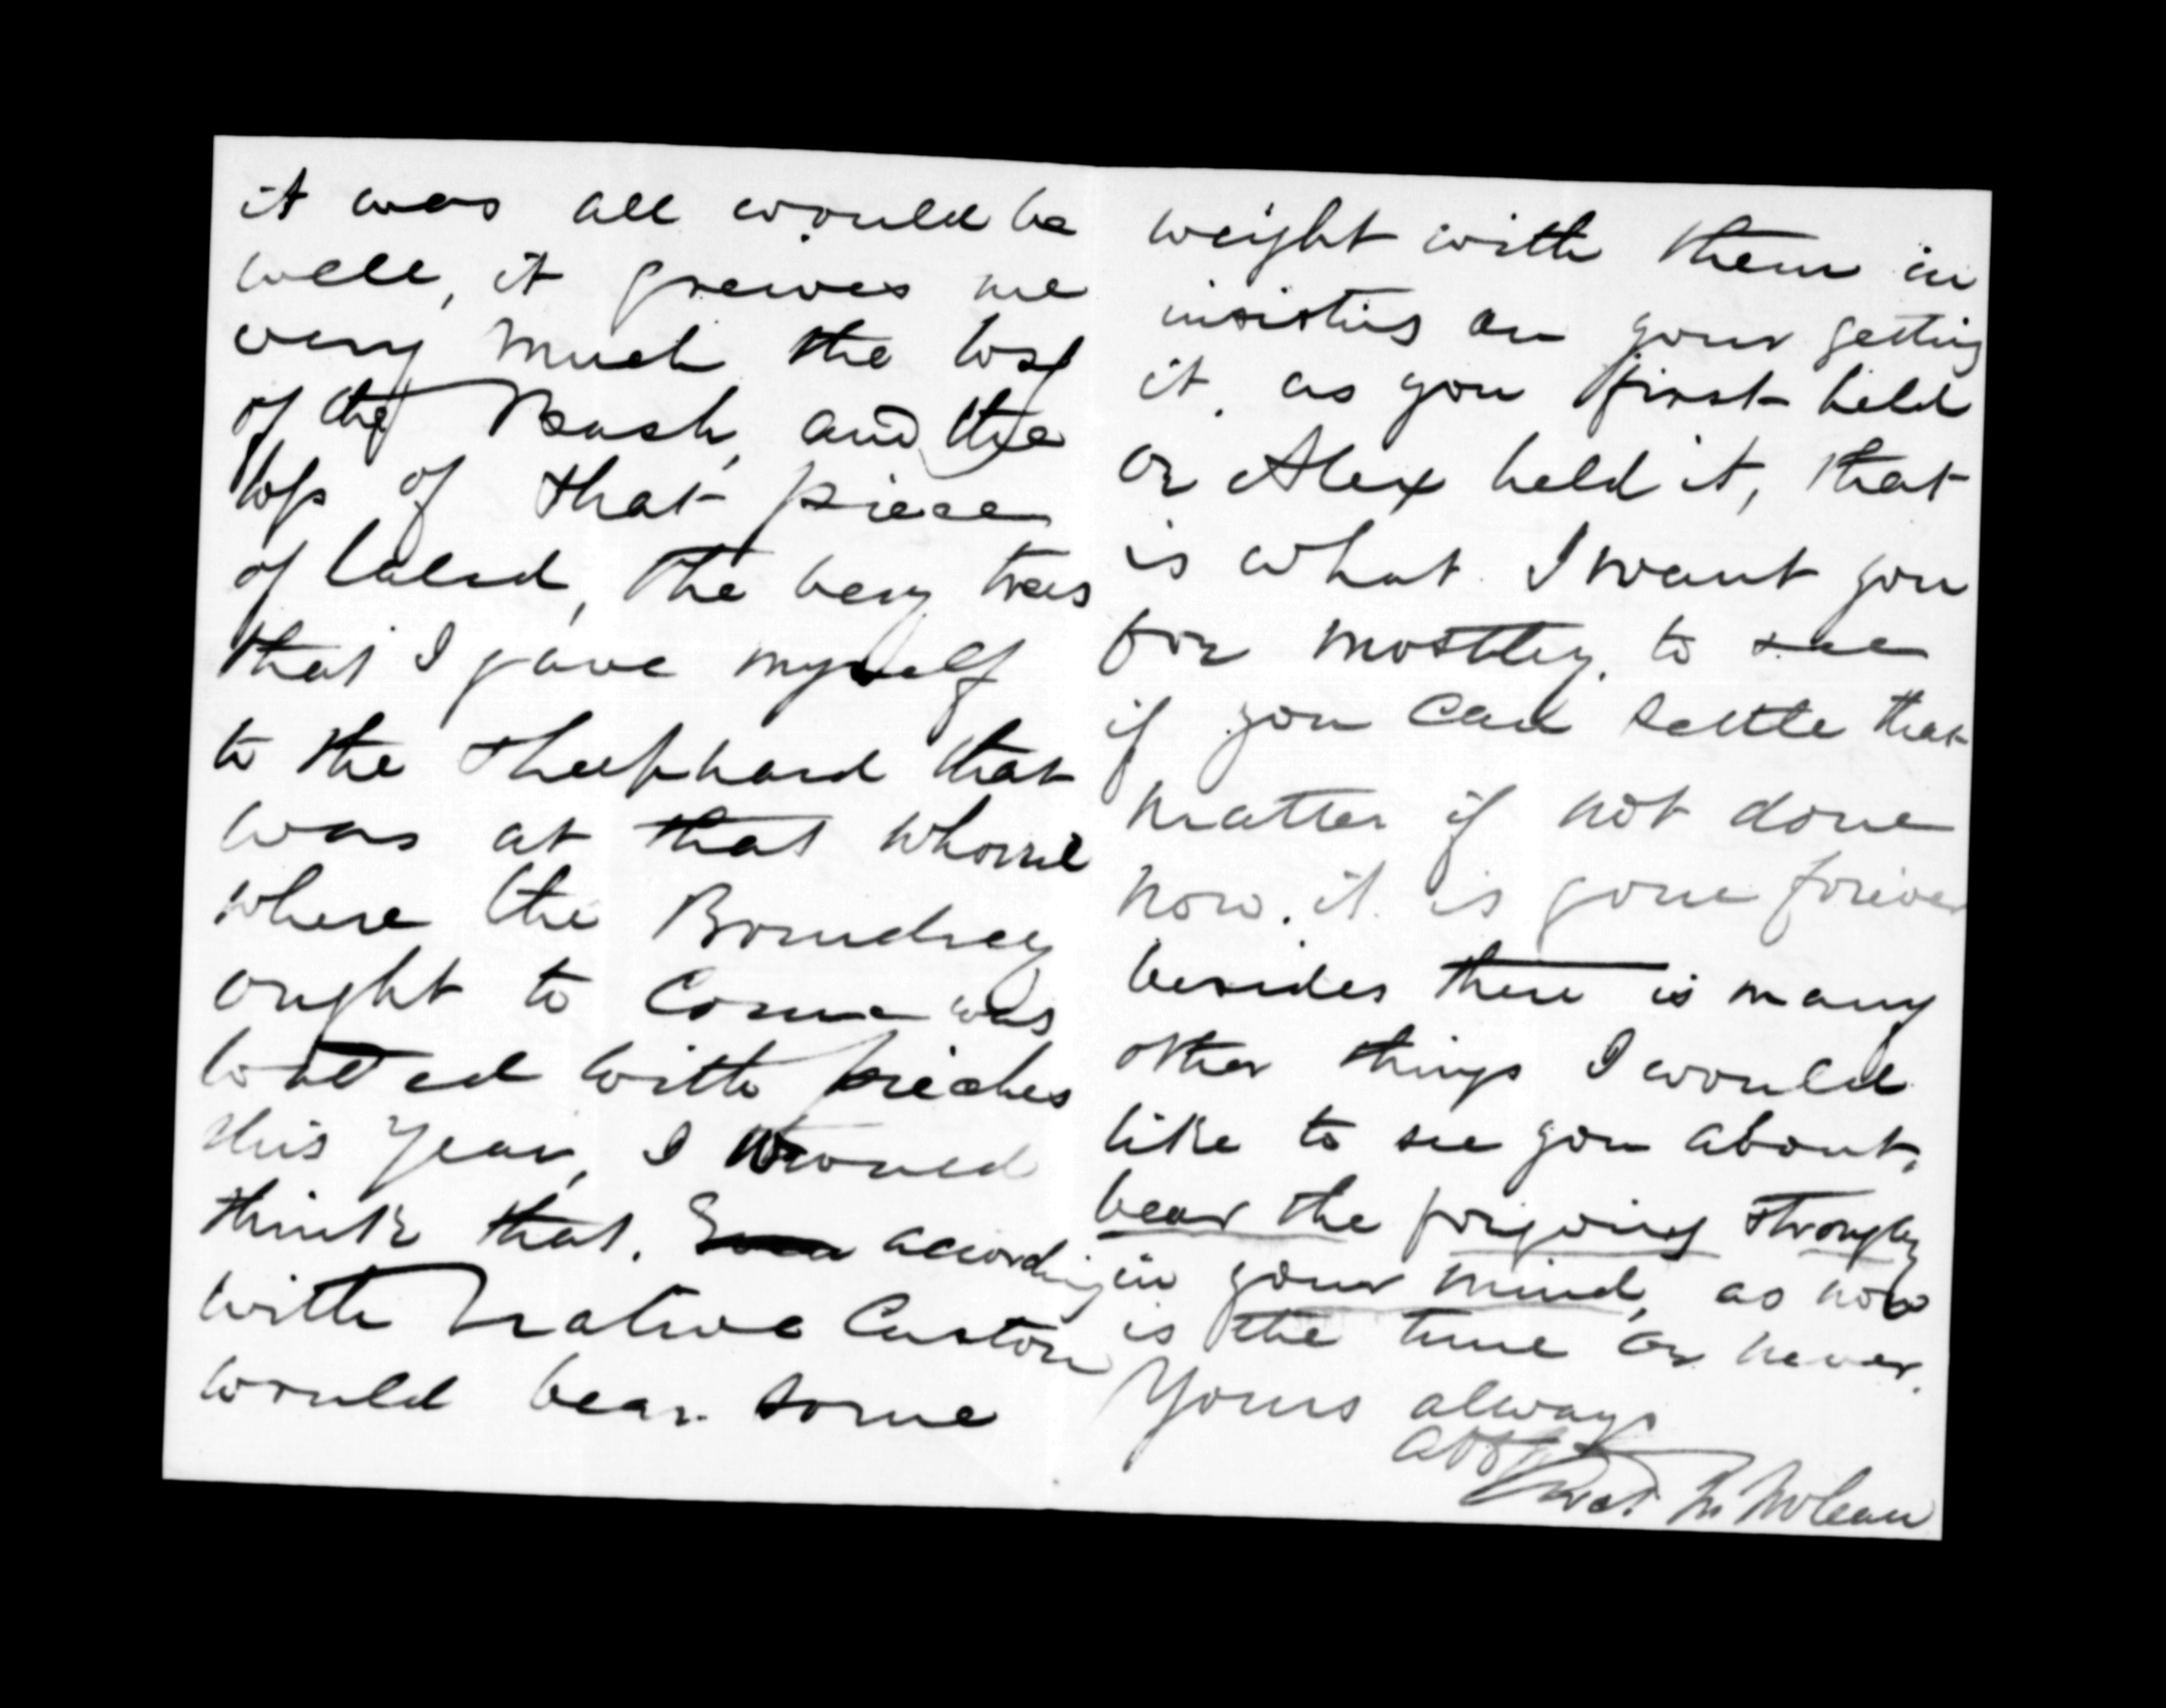 it was all would be
well, it greives me
very much the loss
of the Bush, and the
loss of that piece
of land, the very trees
that I gave myself
to the Shephard that
was at that whorie
where the Boundrey
ought to Come was
loaded with pieches
this year, I would
think that. according
with Native Custom
would bear some
weight with them in
insisting on your getting
it. as you first held
or Alex held it, that
is what I want you
for mostley. to see
if you can settle that
matter if not done
now. it is gone forever
besides there is many
other things I would
like to see you about.
bear the forgoing strongly
in your mind, as now
is the time or never.
Yours always
McLean